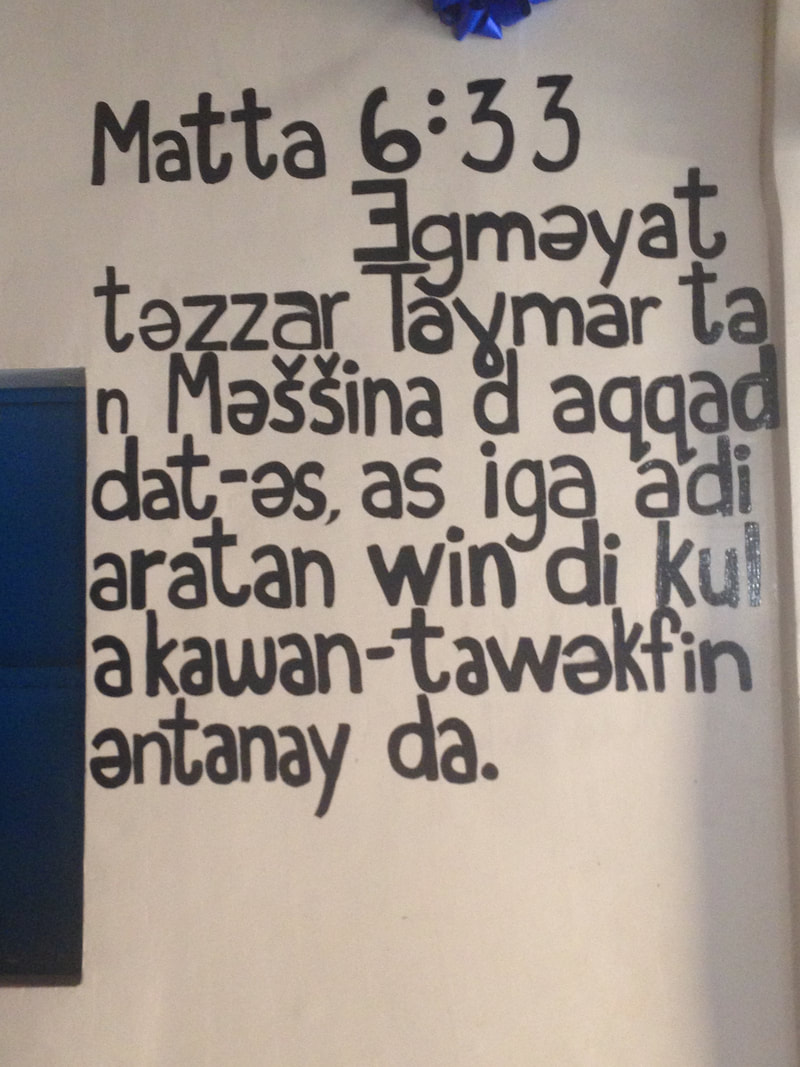 Matta 6:33
Ǝgməyat
təzzar Taɣmar ta
n Məššina d aqqad
dat-əs, as iga adi
aratan win di kul
a kawan-tawəkfin
əntanay da.